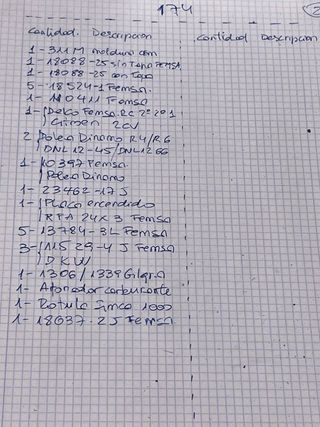 174
2
Cantidad. Descripcion
1 - 311 M moldura con
1 - 18088-25 sin Tapa FEMSA
1 - 18088-25 con Tapa
5 - 18524-1 Femsa.
1 - 110411 Femsa
1 - Delco Femsa RC 2º 2º 1
Citroen 2CV
2 Polea Dinamo R4/R6
DNL 12-45/DNL12 66
1 - 10397 Femsa
Polea Dinamo
1 - 23462-17 J
1 - Placa encendido
RPA 24X3 Femsa
5 - 13784-3L Femsa
3 - 11529-4 J Femsa
DKW
1 - 1306/1339
1 - carburante
1 - Rotula Simca 1000
1 - 18037-25 Femsa
Cantidad Descripcion